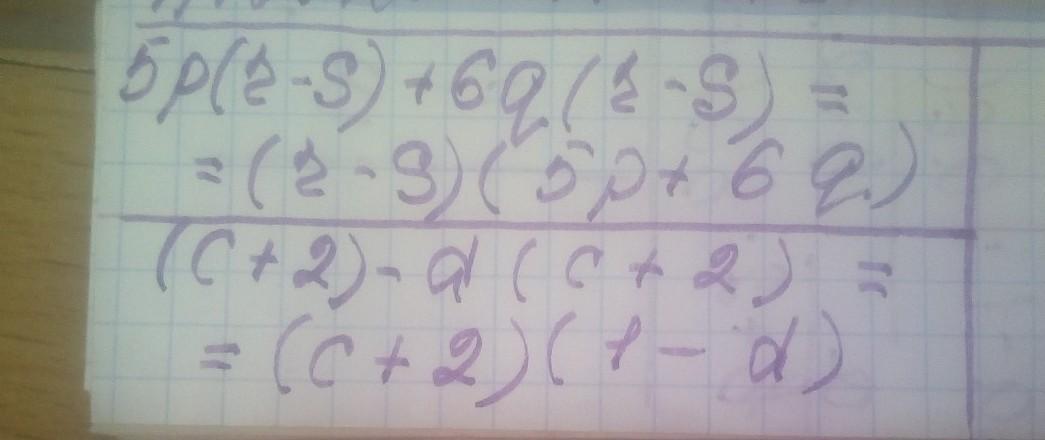 5p(r-s)+6q(r-s)=
=(r-s)(5p+6q)
(c+2)-d(c+2)=
=(c+2)(1-d)